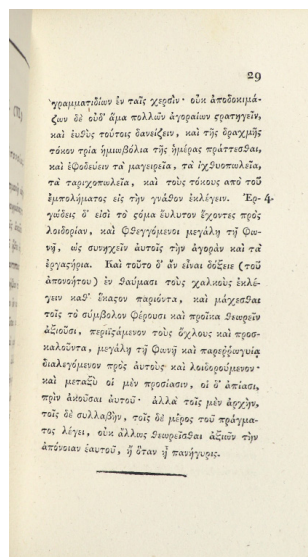 29
γραμματιδίων ἐν ταῖς χερσίν· οὐκ ἀποδοκιμά-
ζων δὲ οὐδ' ἅμα πολλῶν ἀγοραίων ϛρατηγεῖν,
καὶ εὐθὺς τούτοις δανείζειν, καὶ τῆς δραχμῆς
τόκον τρία ἡμιωβόλια τῆς ἡμέρας πράττεσθαι,
καὶ ἐφοδεύειν τὰ μαγειρεῖα, τὰ ἰχθυοπωλεῖα,
τὰ ταριχοπωλεῖα, καὶ τοὺς τόκους ἀπὸ τοῦ
ἐμπολήματος εἰς τὴν γνάθον ἐκλέγειν. Ἐρ- 4.
γώδεις δ' εἰσὶ τὸ ϛόμα ἔυλυτον ἔχοντες πρὸς
λοιδορίαν, καὶ φθεγγόμενοι μεγάλῃ τῇ φω-
νῇ, ὡς συνηχεῖν αὐτοῖς τὴν ἀγορὰν καὶ τὰ
ἐργαϛήρια. Καὶ τοῦτο δ' ἂν εἶναι δόξειε (τοῦ
ἀπονοήτου) ἐν θαύμασι τοὺς χαλκοὺς ἐκλέ-
γειν καθ' ἕκαϛον παριόντα, καὶ μάχεσθαι
τοῖς τὸ σύμβολον φέρουσι καὶ προῖκα θεωρεῖν
ἀξιοῦσι, περιιϛάμενον τοὺς ὄχλους καὶ προσ-
καλοῦντα, μεγάλῃ τῇ φωνῇ καὶ παρεῤῥωγυίᾳ
διαλεγόμενον πρὸς αὐτοὺς καὶ λοιδορούμενον·
καὶ μεταξὺ οἱ μὲν προσίασιν, οἱ δ' ἀπίασι,
πρὶν ἀκοῦσαι αὐτοῦ· ἀλλὰ τοῖς μὲν ἀρχὴν,
τοῖς δὲ συλλαβὴν, τοῖς δὲ μέρος τοῦ πράγμα-
τος λέγει, οὐκ ἄλλως θεωρεῖσθαι ἀξιῶν τὴν
ἀπόνοιαν ἑαυτοῦ, ἢ ὅταν ᾖ πανήγυρις.